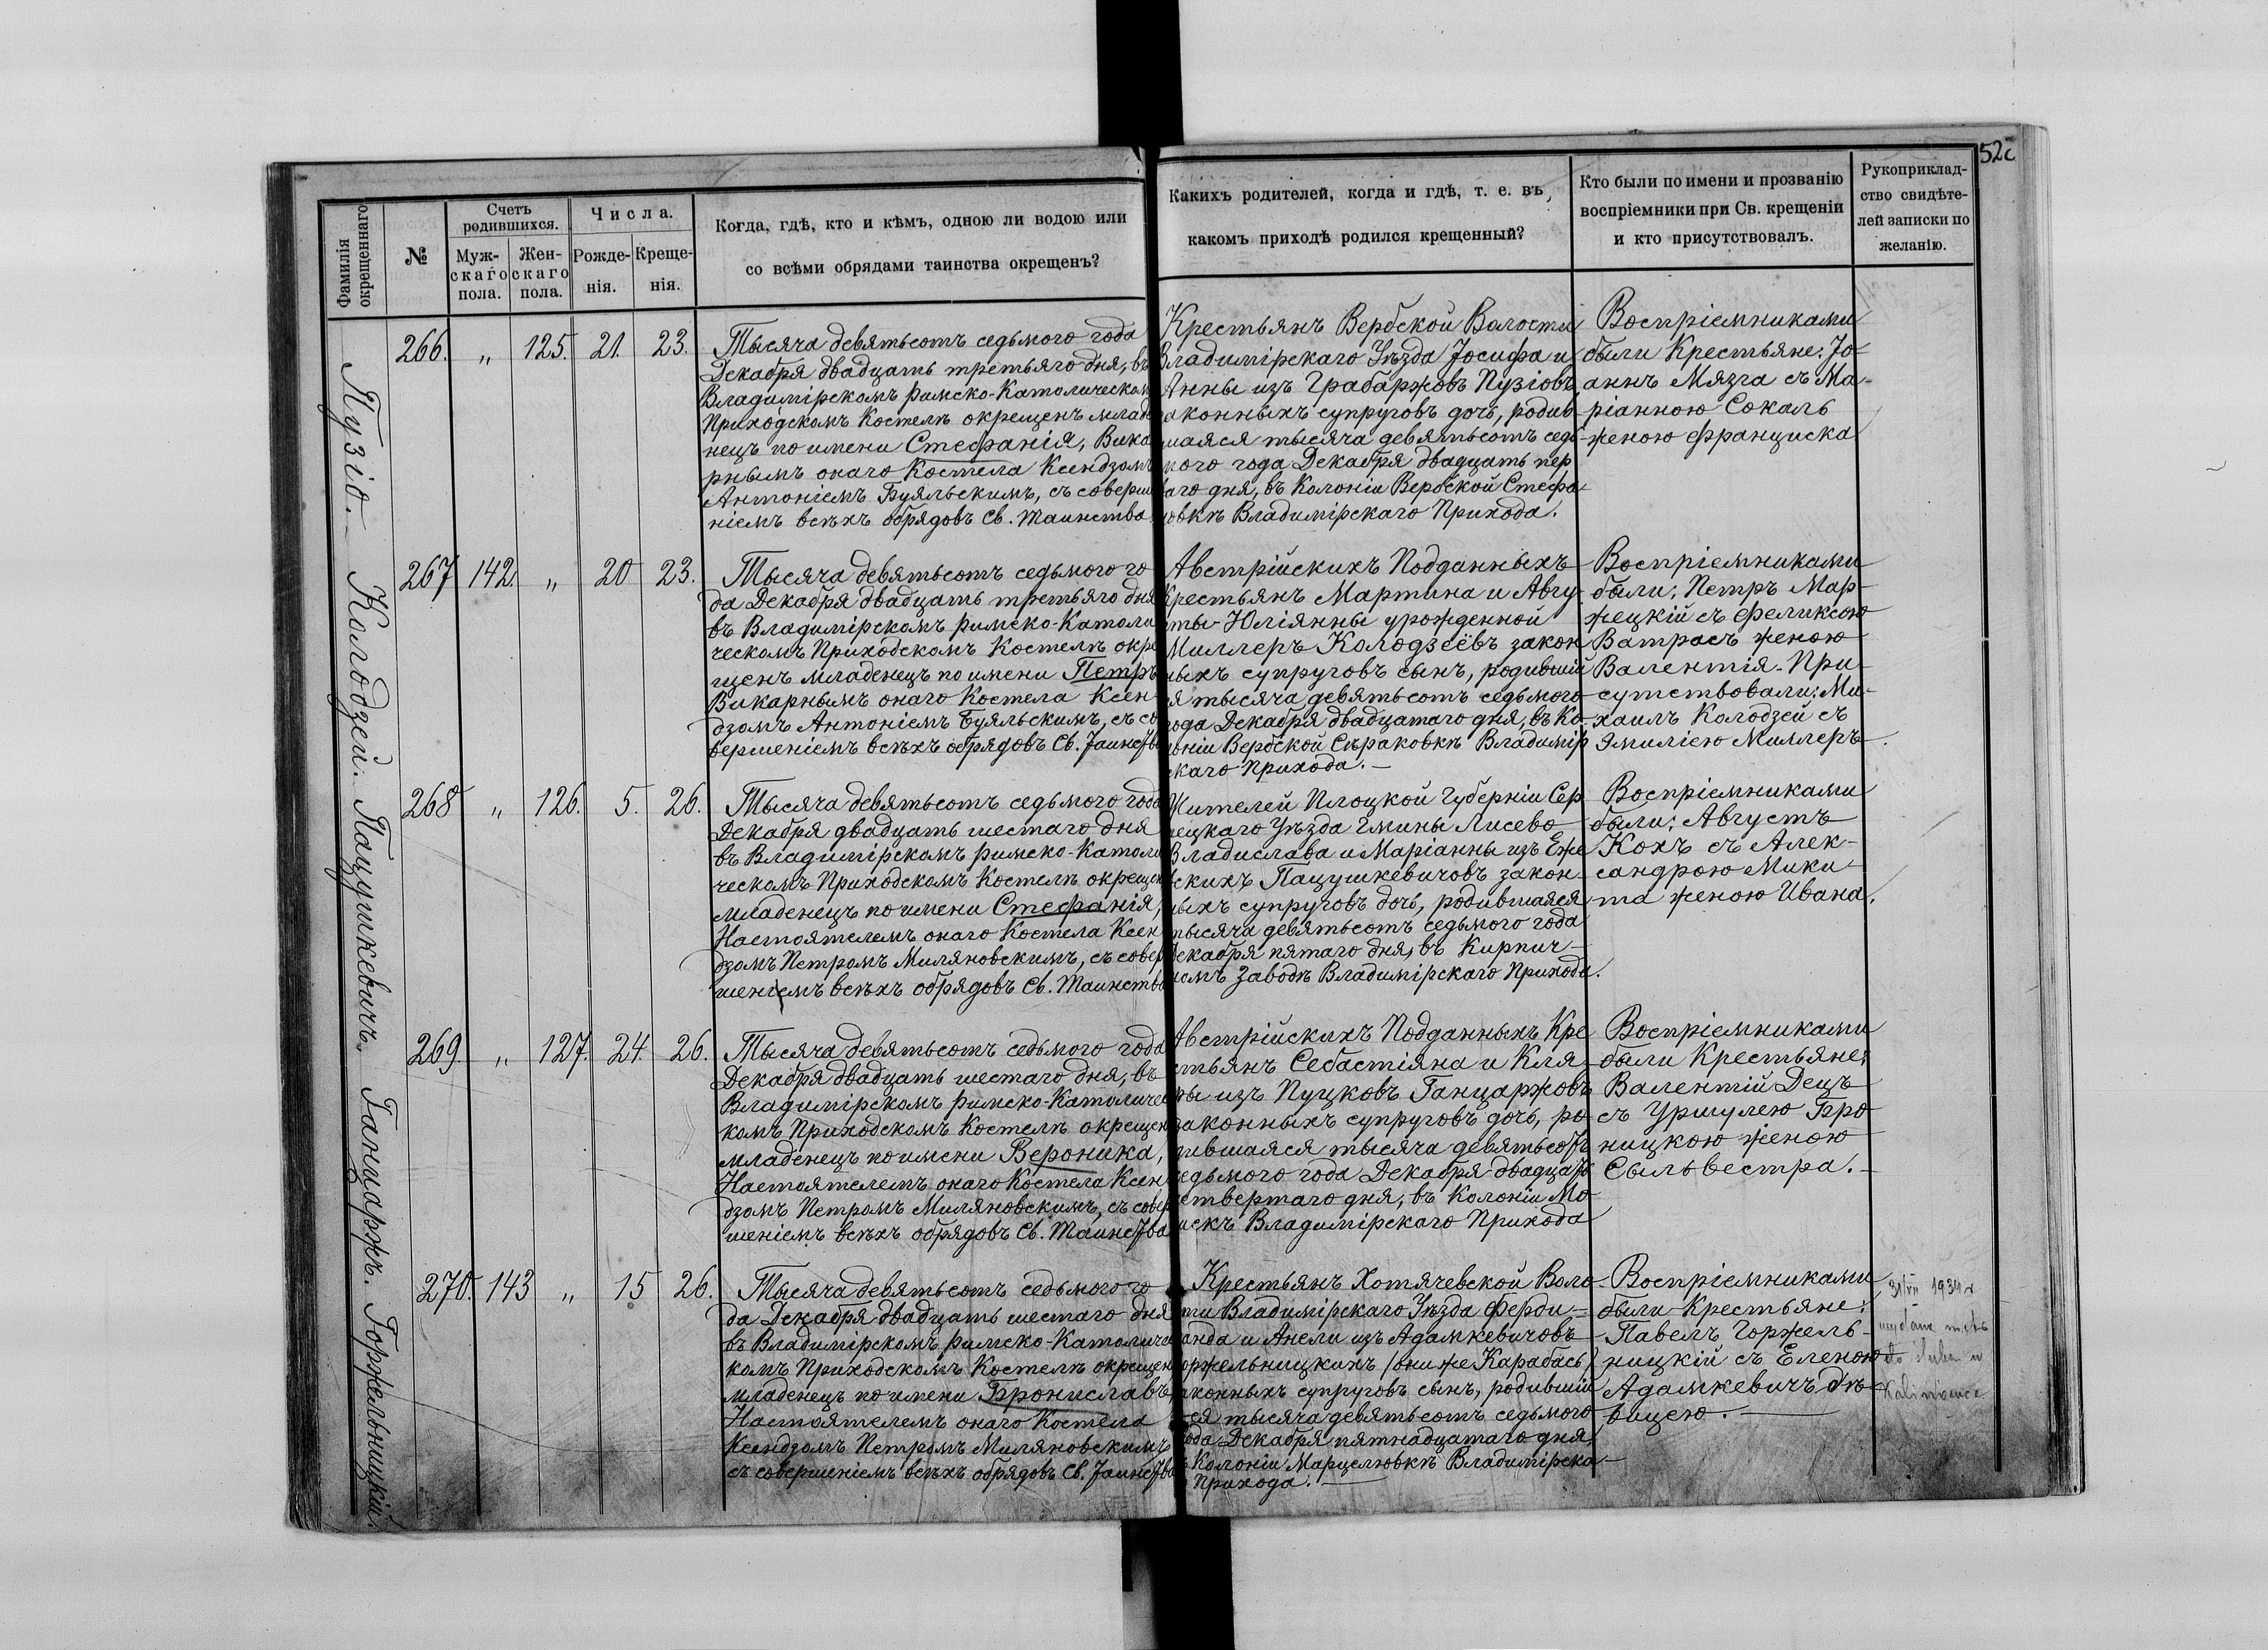 52
Фамилія окрещеннаго
№
Счетъ родившихся.
Мужскаго пола.
Женскаго пола.
Числа.
Рожденія.
Крещенія.
Когда, гдѣ, кто и кѣмъ, одною ли водою или
со всѣми обрядами таинства окрещенъ?
Какихъ родителей, когда и гдѣ, т. е. въ
какомъ приходѣ родился крещенный?
Кто были по имени и прозванію
воспріемники при Св. крещеніи
и кто присутствовалъ.
Рукоприклад-
ство свидѣте-
лей записки по
желанію.
Пузіо.
266. „ 125. 21. 23.
Тысяча девятьсотъ седьмого года
Декабря двадцать третьяго дня, въ
Владимірскомъ Римско-Католическом
Приходскомъ Костелѣ окрещенъ младе
нецъ по имени Стефанія, Вика
рнымъ онаго Костела Ксендзомъ
Антоніемъ Буяльскимъ, съ соверше
ніемъ всѣхъ обрядовъ Св. Таинства
Крестьянъ Вербской Волости
Владимірскаго Уѣзда Іосифа и
Анны изъ Грабаржовъ Пузіовъ,
законныхъ супруговъ дочь, родив
шаяся тысяча девятьсотъ седь
мого года Декабря двадцать пер
ваго дня, въ Колоніи Вербской Стефа
новкѣ Владимірскаго Прихода.
Воспріемниками
были Крестьяне: Іо-
аннъ Мязга съ Ма-
ріанною Сокаль
женою Франциска
Колодзей.
267 142. „ 20 23.
Тысяча девятьсотъ седьмого го
да Декабря двадцать третьяго дня
въ Владимірскомъ Римско-Католи
ческомъ Приходскомъ Костелѣ окре
щенъ младенецъ по имени Петръ
Викарнымъ онаго Костела Ксен
дзомъ Антоніемъ Буяльскимъ, съ со
вершеніемъ всѣхъ обрядовъ Св. Таинства
Австрійскихъ Подданныхъ
Крестьянъ Мартина и Авгу-
сты-Юліянны урожденной
Миллеръ Колодзеёвъ закон
ныхъ супруговъ сынъ, родивший
ся тысяча девятьсотъ седьмого
года Декабря двадцатаго дня, въ Ко
лоніи Вербской Сѣраковкѣ Владимір
скаго Прихода.
Воспріемниками
были: Петръ Мар-
жецкій съ Феликсою
Ватрасъ женою
Валентія. При-
сутствовали: Ми-
хаилъ Колодзей съ
Эмиліею Миллеръ.
Пацушкевичъ.
268 „ 126. 5. 26.
Тысяча девятьсотъ седьмого года
Декабря двадцать шестаго дня
въ Владимірскомъ Римско-Католи
ческомъ Приходскомъ Костелѣ окрещен
младенецъ по имени Стефанія,
Настоятелемъ онаго Костела Ксен
дзомъ Петромъ Миляновскимъ, съ совер
шеніемъ всѣхъ обрядовъ Св. Таинства
Жителей Плоцкой Губерніи Сер
пецкаго Уѣзда Гмины Лисево
Владислава и Маріанны изъ Еже
вскихъ Пацушкевичовъ закон-
ныхъ супруговъ дочь, родившаяся
тысяча девятьсотъ седьмого года
Декабря пятаго дня, въ Кирпич-
номъ Заводѣ Владимірскаго Прихода.
Воспріемниками
были: Августъ
Кохъ съ Алек-
сандрою Мики-
та женою Ивана.
Ганцаржъ.
269. „ 127. 24. 26.
Тысяча девятьсотъ седьмого года
Декабря двадцать шестаго дня, въ
Владимірскомъ Римско-Католичес
комъ Приходскомъ Костелѣ окрещен
младенецъ по имени Вероника,
Настоятелемъ онаго Костела Ксен
дзомъ Петромъ Миляновскимъ, съ совер
шеніемъ всѣхъ обрядовъ Св. Таинства
Австрійскихъ Подданныхъ Кре
стьянъ Себастіяна и Кля
ры изъ Пуцковъ Ганцаржовъ
законныхъ супруговъ дочь, ро
дившаяся тысяча девятьсотъ
седьмого года Декабря двадцать
четвертаго дня, въ Колоніи Мо
искъ Владимірскаго Прихода
Воспріемниками
были Крестьяне:
Валентій Децъ
съ Уршулею Бро
ницкою женою
Сыльвестра.
Горжельницкій.
270. 143 „ 15 26.
Тысяча девятьсотъ седьмого го
да Декабря двадцать шестаго дня
въ Владимірскомъ Римско-Католичес
комъ Приходскомъ Костелѣ окрещен
младенецъ по имени Брониславъ,
Настоятелемъ онаго Костела
Ксендзомъ Петромъ Миляновскимъ
съ совершеніемъ всѣхъ обрядовъ Св. Таинства
Крестьянъ Хотячевской Воло
сти Владимірскаго Уѣзда Ферди-
нанда и Анели изъ Адамкевичовъ
Горжельницкихъ (они же Карабась)
законныхъ супруговъ сынъ, родивший
ся тысяча девятьсотъ седьмого
года Декабря пятнадцатаго дня,
въ Колоніи Марцелювкѣ Владимірска
Прихода.
Воспріемниками
были Крестьяне:
Павелъ Горжель-
ницкій съ Еленою
Адамкевичъ дѣ-
вицею.
31/VII 1934 r
wydano
do ślubu w